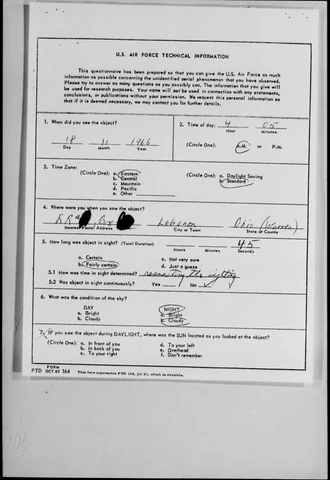 U.S. AIR FORCE TECHNICAL INFORMATION
This questionnaire has been prepared so that you can give the U.S. Air Force as much
information as possible concerning the unidentified aerial phenomenon that you have observed.
Please try to answer as many questions as you possibly can. The information that you give will
be used for research purposes. Your name will not be used in connection with any statements,
conclusions, or publications without your permission. We request this personal information so
that if it is deemed necessary, we may contact you for further details.
1. When did you see the object?
18 11 1966
Day Month Year
2. Time of day: 4 05
Hour Minutes
(Circle One): A.M. or P.M.
3. Time Zone:
(Circle One): a. Eastern
b. Central
c. Mountain
d. Pacific
e. Other
(Circle One): a. Daylight Saving
b. Standard
4. Where were you when you saw the object?
RR Box Lebanon Ohio (Warren)
Nearest Postal Address City or Town State or County
5. How long was object in sight? (Total Duration) 45
Hours Minutes Seconds
a. Certain c. Not very sure
b. Fairly certain d. Just a guess
5.1 How was time in sight determined? recounting the sighting
5.2 Was object in sight continuously? Yes No ✓
6. What was the condition of the sky?
DAY NIGHT
a. Bright a. Bright
b. Cloudy b. Cloudy
7. IF you saw the object during DAYLIGHT, where was the SUN located as you looked at the object?
(Circle One): a. In front of you d. To your left
b. In back of you e. Overhead
c. To your right f. Don't remember
FORM
FTD OCT 62 164 This form supersedes FTD 164, Jul 61, which is obsolete.